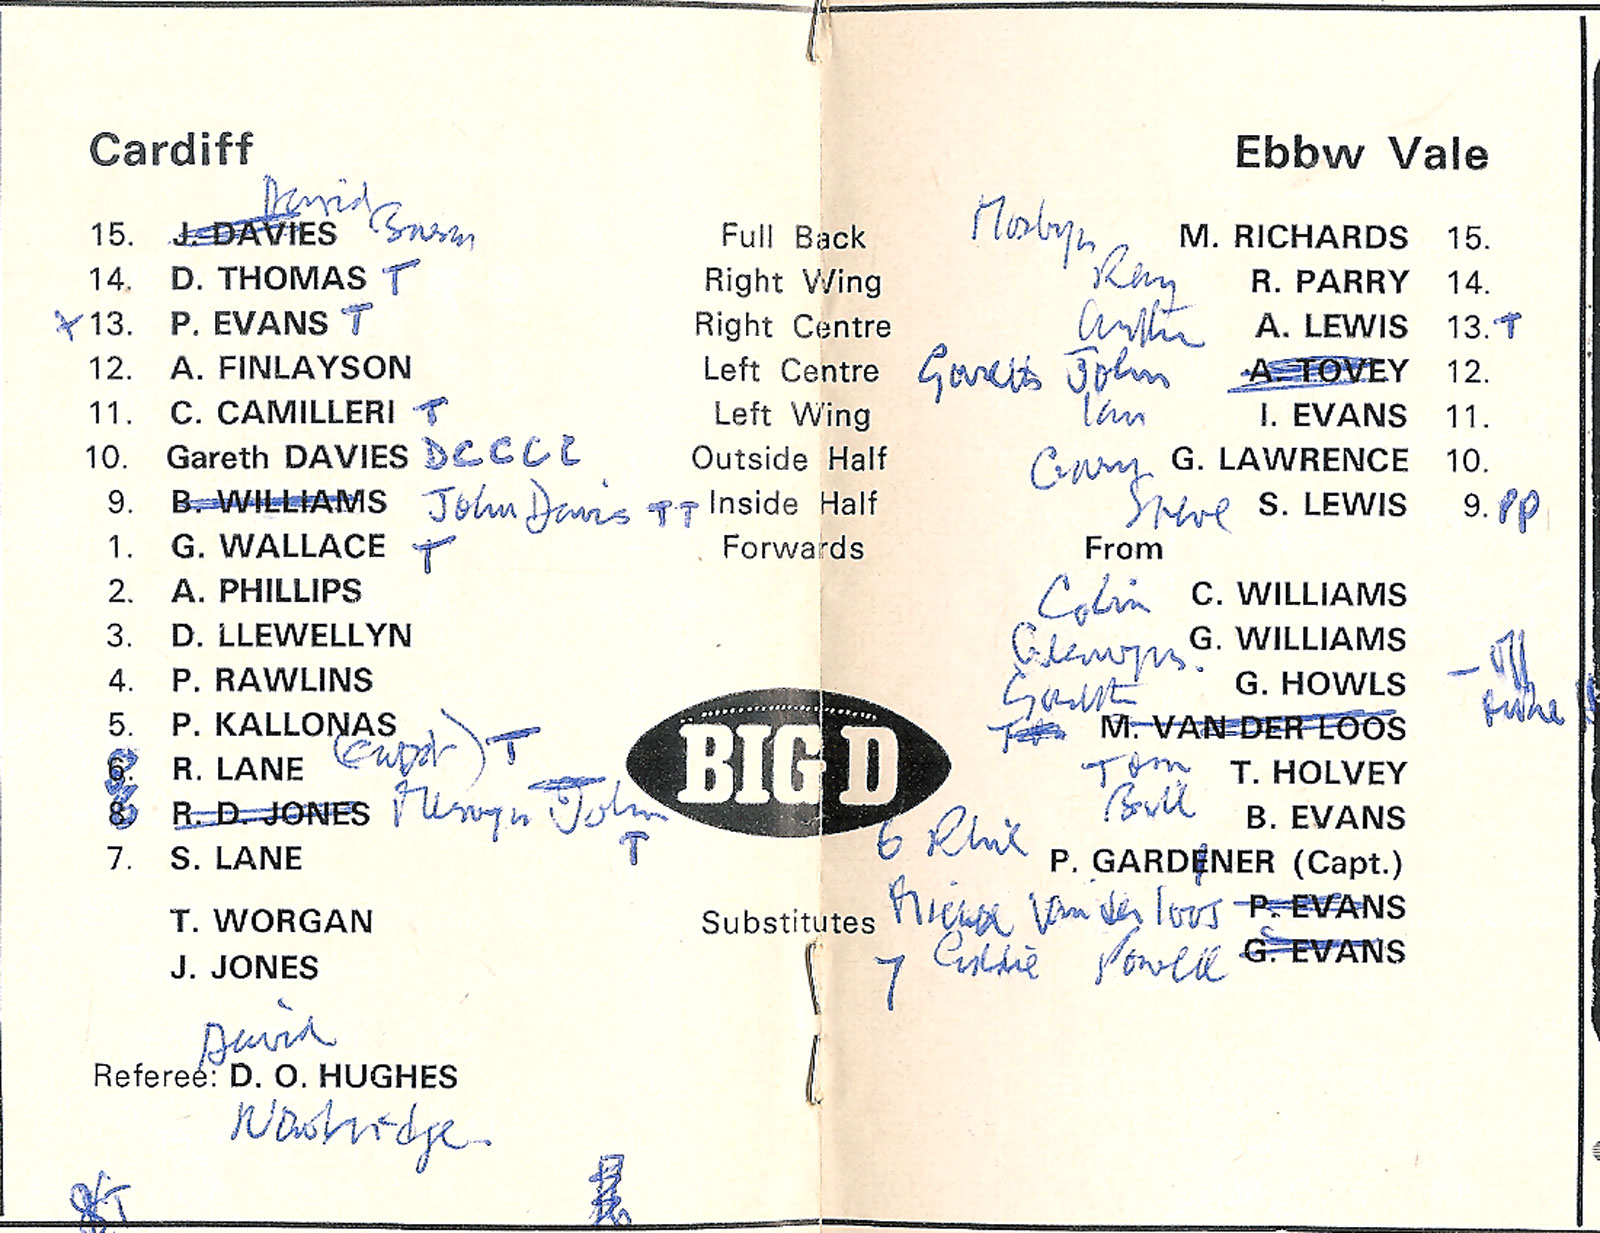 Cardiff
Ebbw Vale
David
15. J. DAVIES Full Back M. RICHARDS 15.
14. D. THOMAS T Right Wing Ray R. PARRY 14.
x 13. P. EVANS T Right Centre A. LEWIS 13. T
12. A. FINLAYSON Left Centre Gareth John A. TOVEY 12.
11. C. CAMILLERI T Left Wing Ian I. EVANS 11.
10. Gareth DAVIES DCCCC Outside Half Gary G. LAWRENCE 10.
9. B. WILLIAMS John Davis TT Inside Half Steve S. LEWIS 9. PP
1. G. WALLACE T Forwards From
2. A. PHILLIPS Colin C. WILLIAMS
3. D. LLEWELLYN G. WILLIAMS
4. P. RAWLINS G. HOWLS - Off
5. P. KALLONAS M. VAN DER LOOS
6. R. LANE (capt) T BIG D Tom T. HOLVEY
8. R. D. JONES Mervyn John T Bill B. EVANS
7. S. LANE 6 Phil P. GARDENER (Capt.)
T. WORGAN Substitutes Van der loos P. EVANS
J. JONES 7 Eddie Powell G. EVANS
David
Referee: D. O. HUGHES
Newbridge